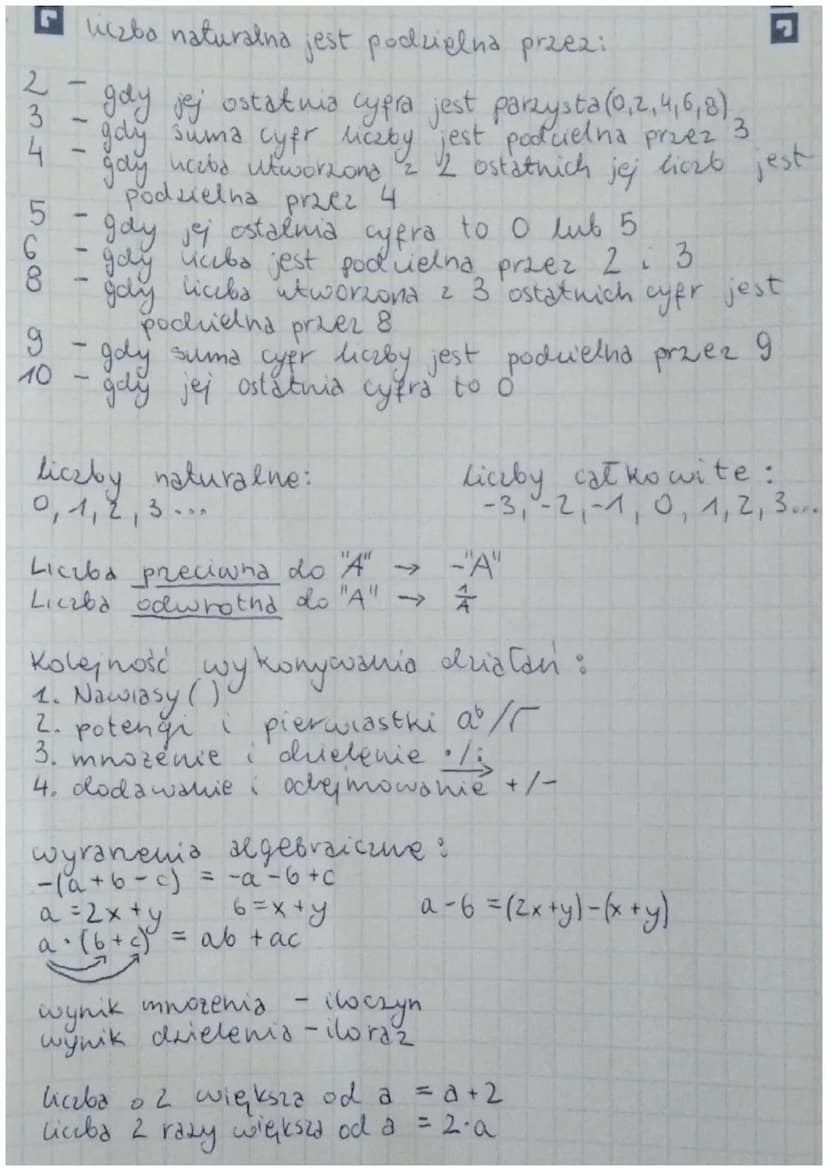 liczba naturalna jest podzielna przez:
2 - gdy jej ostatnia cyfra jest parzysta (0,2,4,6,8)
3 - gdy suma cyfr liczby jest podzielna przez 3
4 - gdy liczba utworzona z 2 ostatnich jej liczb jest
podzielna przez 4
5 - gdy jej ostatnia cyfra to 0 lub 5
6 - gdy liczba jest podzielna przez 2 i 3
8 - gdy liczba utworzona z 3 ostatnich cyfr jest
podzielna przez 8
9 - gdy suma cyfr liczby jest podzielna przez 9
10 - gdy jej ostatnia cyfra to 0
liczby naturalne: liczby całkowite:
0, 1, 2, 3... -3, -2, -1, 0, 1, 2, 3...
Liczba przeciwna do "A" → -"A"
Liczba odwrotna do "A" → 1/A
Kolejność wykonywania działań:
1. Nawiasy ( )
2. potęgi i pierwiastki aᵇ/√
3. mnożenie i dzielenie ·/:
4. dodawanie i odejmowanie +/-
wyrażenia algebraiczne:
-(a+b-c) = -a-b+c
a=2x+y b=x+y a-b=(2x+y)-(x+y)
a·(b+c) = ab+ac
wynik mnożenia - iloczyn
wynik dzielenia - iloraz
liczba o 2 większa od a = a+2
liczba 2 razy większa od a = 2·a